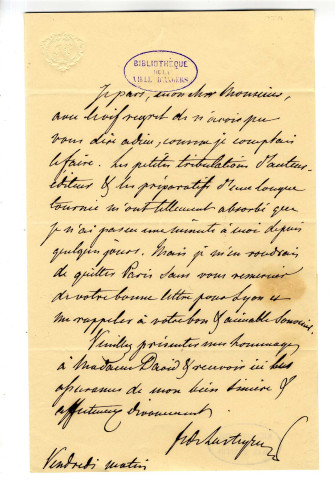 BIBLIOTHÈQUE
DE LA
VILLE D'ANGERS
Je pars, mon cher Monsieur,
avec le vif regret de n'avoir pu
vous dire adieu, comme je comptais
le faire. Les petites tribulations d'auteur-
éditeur & les préparatifs d'une longue
tournée m'ont tellement absorbé que
je n'ai pas eu une minute à moi depuis
quelques jours. Mais je m'en voudrais
de quitter Paris sans vous remercier
de votre bonne lettre pour Lyon &
me rappeler à votre bon & aimable souvenir.
Veuillez présenter mes hommages
à Madame David & recevoir ici les
assurances de mon bien sincère &
affectueux dévouement.
Vendredi matin